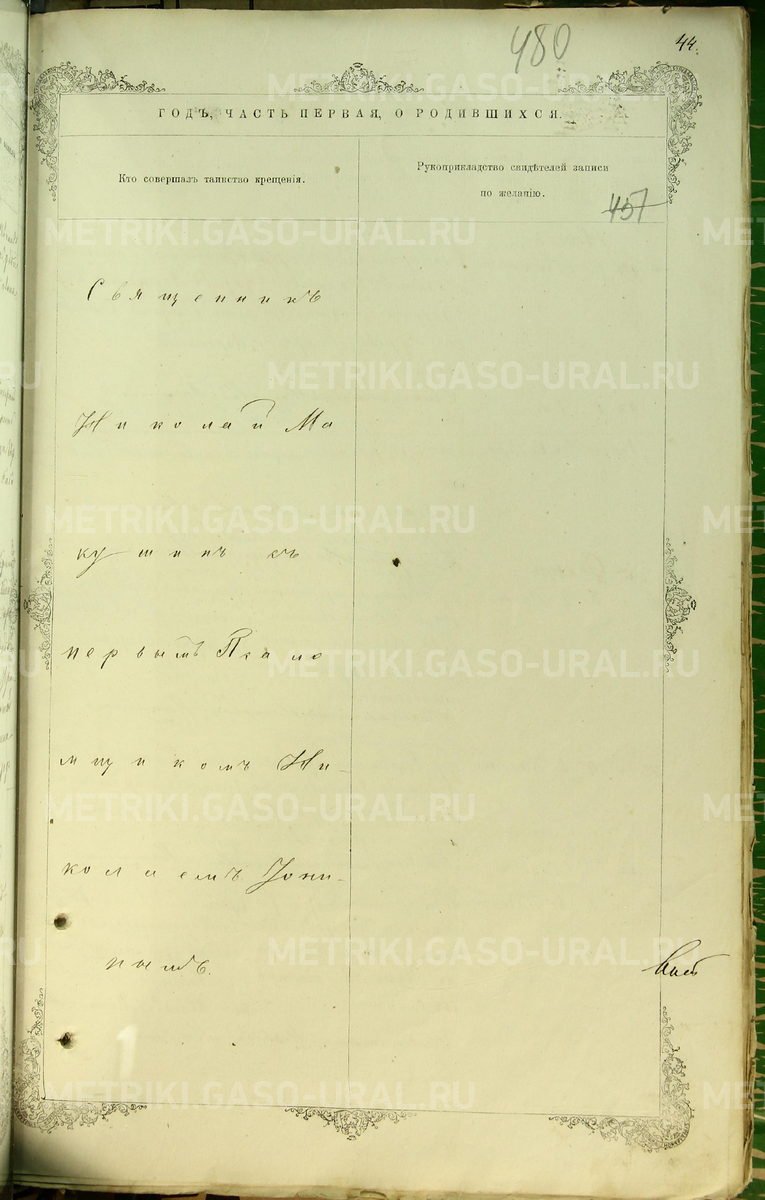 480
44.
ГОДЪ, ЧАСТЬ ПЕРВАЯ, О РОДИВШИХСЯ.
Кто совершалъ таинство крещенія.
Рукоприкладство свидѣтелей записи
по желанію.
457
Священникъ
Николай Ма
кушинъ съ
первымъ Псало
мщикомъ Ни-
колаемъ
нымъ.
METRIKI.GASO-URAL.RU